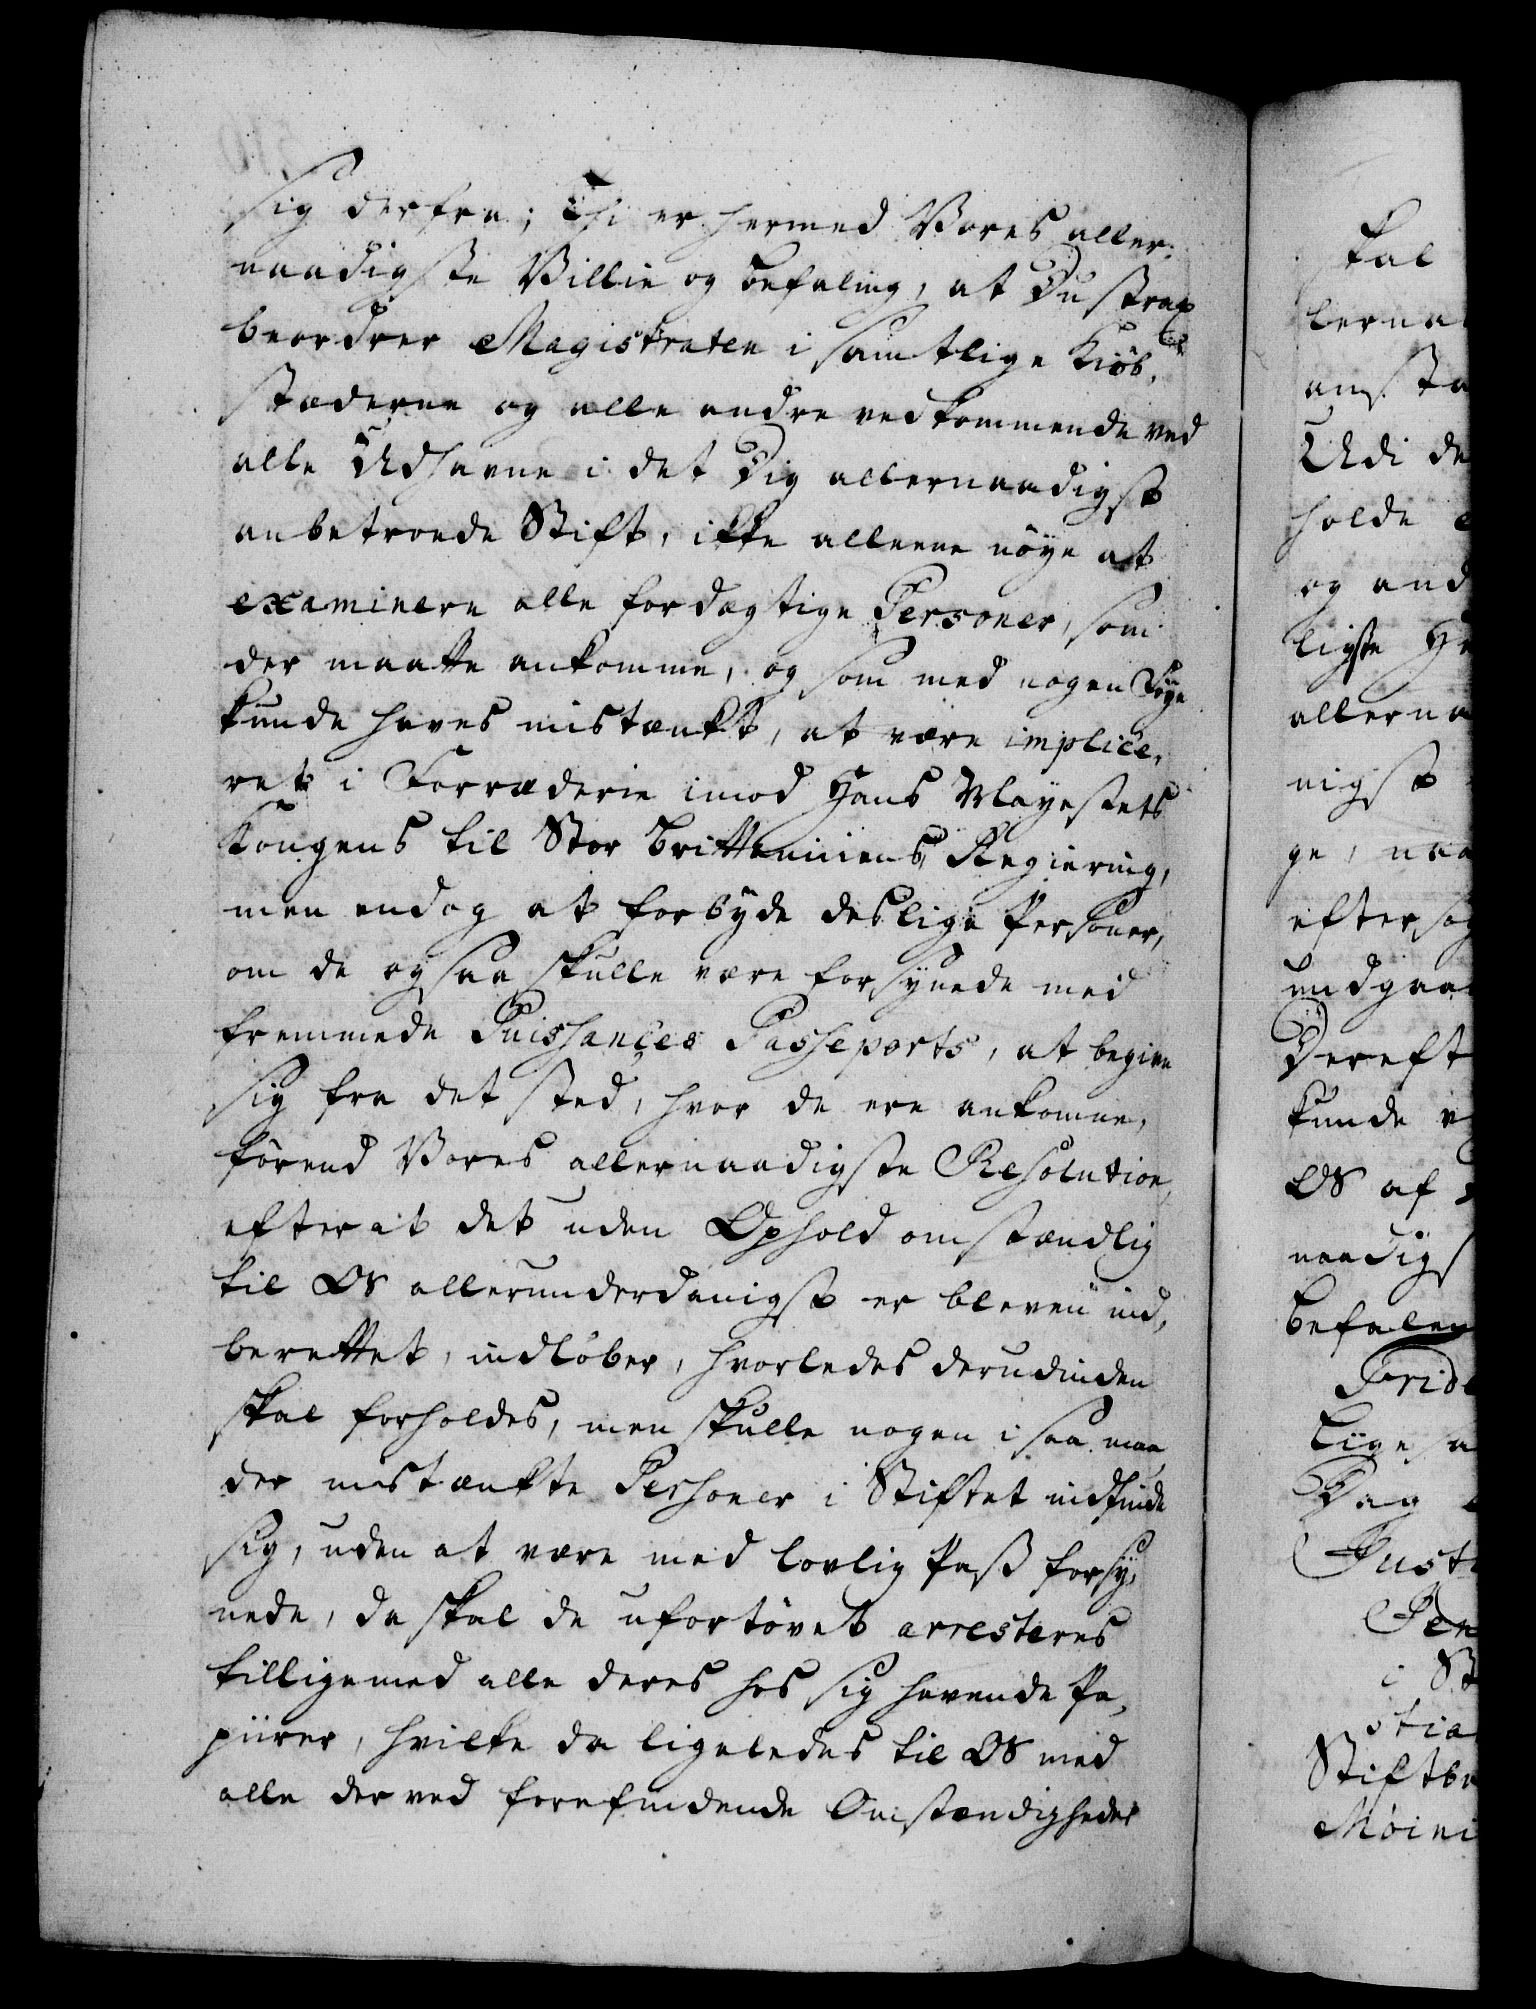 sig derfra; Thi er hermed Vores aller,
naadigste Villie og befaling, at Du strax
beordrer Magistraten i samtlige Kiöb,
stæderne og alle andre vedkommende ved
alle Udhavne i det Dig allernaadigst
anbetroede Stift, ikke alleene nöye at
examinere alle fordægtige Personer, som
der maatte ankomme, og som med nogen Föye
kunde haves mistænkt, at være implice,
ret i Forræderie imod Hans Mayestets
Kongens til Stor Brittanniens Regiering,
men endog at forbyde deslige Personer,
om de ogsaa skulle være forsynede med
fremmede Puissances Passeports, at begive
sig fra det sted, hvor de ere ankomne,
förend Vores allernaadigste Resolution,
efter at det uden Ophold omstændlig
til OS allerunderdanigst er bleven ind,
berettet, indlöber, hvorledes derudinden
skal forholdes, men skulle nogen i saa maa
der mistænkte Personer i Stiftet indfinde
sig, uden at være med lovlig Pass forsy,
nede, da skal de ufortövet arresteres
tilligemed alle deres hos sig havende Pa,
piirer, hvilke da ligeledes til OS med
alle derved forefindende Omstændigheder
skal
anst
Udi de
holde
og and
ligste
allerna
nigst
ge, naa
efter
undgaa
Dereft
kunde
OS af
naadigs
befalen
Frid
Dag
Justi
i St
stia
Stiftbe